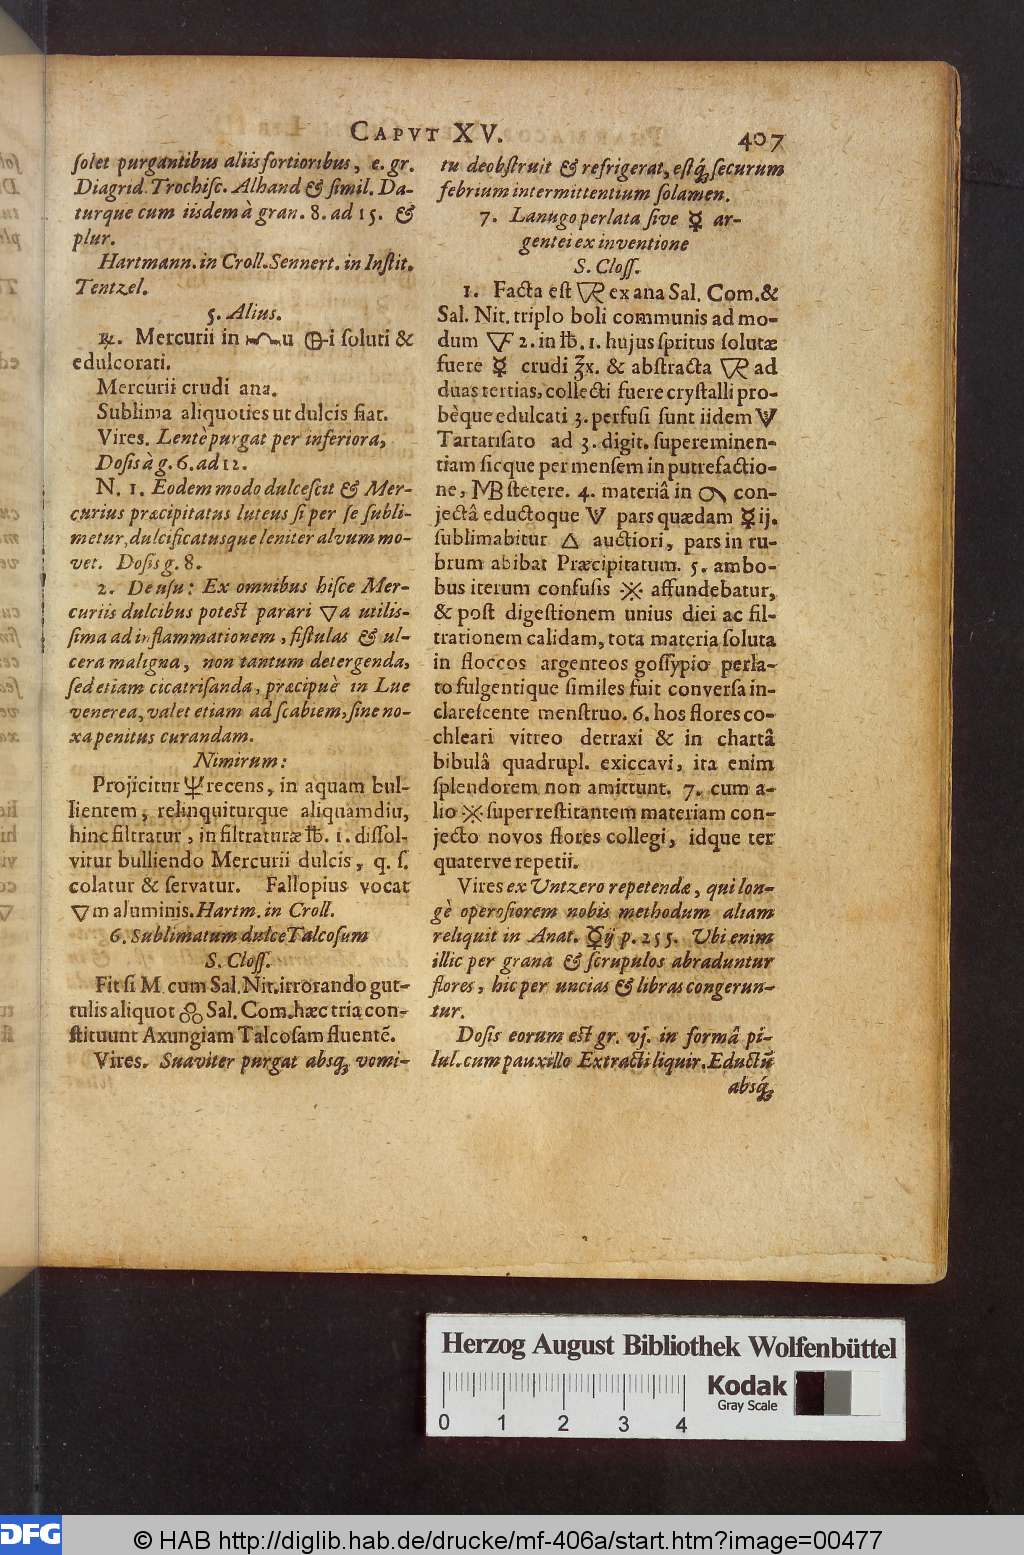 CAPVT XV. 407
ſolet purgantibus aliis fortioribus, e. gr.
Diagrid. Trochiſc. Alhand & ſimil. Da-
turque cum iisdem à gran. 8. ad 15. &
plur.
Hartmann. in Croll. Sennert. in Inſtit.
Tentzel.
5. Alius.
℞. Mercurii in u i ſoluti &
edulcorati.
Mercurii crudi ana.
Sublima aliquoties ut dulcis fiat.
Vires. Lentè purgat per inferiora,
Doſis à g. 6. ad 12.
N. 1. Eodem modo dulceſcit & Mer-
curius præcipitatus luteus ſi per ſe ſubli-
metur, dulcificatusque leniter alvum mo-
vet. Doſis g. 8.
2. De uſu: Ex omnibus hiſce Mer-
curiis dulcibus poteſt parari 🜄a utilis-
ſima ad inflammationem, fiſtulas & ul-
cera maligna, non tantum detergenda,
ſed etiam cicatriſanda, præcipuè in Lue
venerea, valet etiam ad ſcabiem, ſine no-
xa penitus curandam.
Nimirum:
Projicitur 🜐 recens, in aquam bul-
lientem, relinquiturque aliquamdiu,
hinc filtratur, in filtraturæ ℔. 1. diſſol-
vitur bulliendo Mercurii dulcis, q. ſ.
colatur & ſervatur. Fallopius vocat
🜄m aluminis. Hartm. in Croll.
6. Sublimatum dulce Talcoſum
S. Cloſſ.
Fit ſi M. cum Sal. Nit. irrorando gut-
tulis aliquot Sal. Com. hæc tria con-
ſtituunt Axungiam Talcoſam fluentẽ.
Vires. Suaviter purgat absq; vomi-
tu deobſtruit & refrigerat, eſtq́; ſecurum
febrium intermittentium ſolamen.
7. Lanugo perlata ſive ☿ ar-
gentei ex inventione
S. Cloſſ.
1. Facta eſt 🜆 ex ana Sal. Com. &
Sal. Nit. triplo boli communis ad mo-
dum 🜅 2. in ℔. 1. hujus ſpritus ſolutæ
fuere ☿ crudi ℥x. & abſtracta 🜆 ad
duas tertias, collecti fuere cryſtalli pro-
bèque edulcati 3. perfuſi ſunt iidem
Tartariſato ad 3. digit. ſupereminen-
tiam ſicque per menſem in putrefactio-
ne, MB ſtetere. 4. materiâ in con-
jectâ eductoque pars quædam ☿ij.
ſublimabitur 🜂 auctiori, pars in ru-
brum abibat Præcipitatum. 5. ambo-
bus iterum confuſis affundebatur,
& poſt digeſtionem unius diei ac fil-
trationem calidam, tota materia ſoluta
in floccos argenteos goſſypio perla-
to fulgentique ſimiles fuit converſa in-
clareſcente menſtruo. 6. hos flores co-
chleari vitreo detraxi & in chartâ
bibulâ quadrupl. exiccavi, ita enim
ſplendorem non amittunt. 7. cum a-
lio ſuper reſtitantem materiam con-
jecto novos flores collegi, idque ter
quaterve repetii.
Vires ex Untzero repetendæ, qui lon-
gè operoſiorem nobis methodum aliam
reliquit in Anat. ☿ij p. 255. Ubi enim
illic per grana & ſcrupulos abraduntur
flores, hic per uncias & libras congerun-
tur.
Doſis eorum eſt gr. vj. in formâ pi-
lul. cum pauxillo Extracti liquir. Eductũ
absq́;
Herzog August Bibliothek Wolfenbüttel
Kodak
Gray Scale
0 1 2 3 4
DFG
© HAB http://diglib.hab.de/drucke/mf-406a/start.htm?image=00477